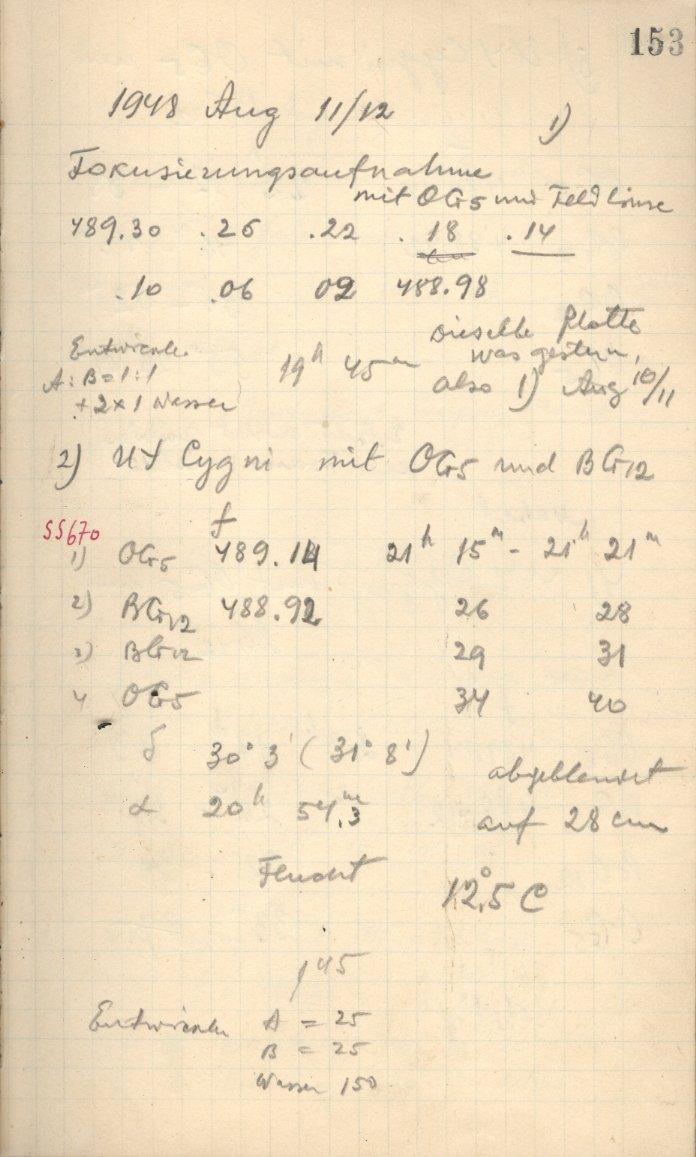 153
1948 Aug 11/12 1)
Fokusierungsaufnahme
mit OG5 und Feldlinse
489.30 .26 .22 .18 .14
.10 .06 02 488.98
Dieselbe Platte
Entwickler 19h 45m was gestern,
A:B=1:1 also 1) Aug 10/11
+2×1 Wasser
2) UX Cygni mit OG5 und BG12
SS670 f
1) OG5 489.14 21h 15m - 21h 21m
2) BG12 488.92 26 28
3) BG12 29 31
4 OG5 34 40
δ 30° 3' (31° 8') abgeblendet
α 20h 54m.3 auf 28 cm
Feucht 12°.5 C
145
Entwickler A = 25
B = 25
Wasser 150